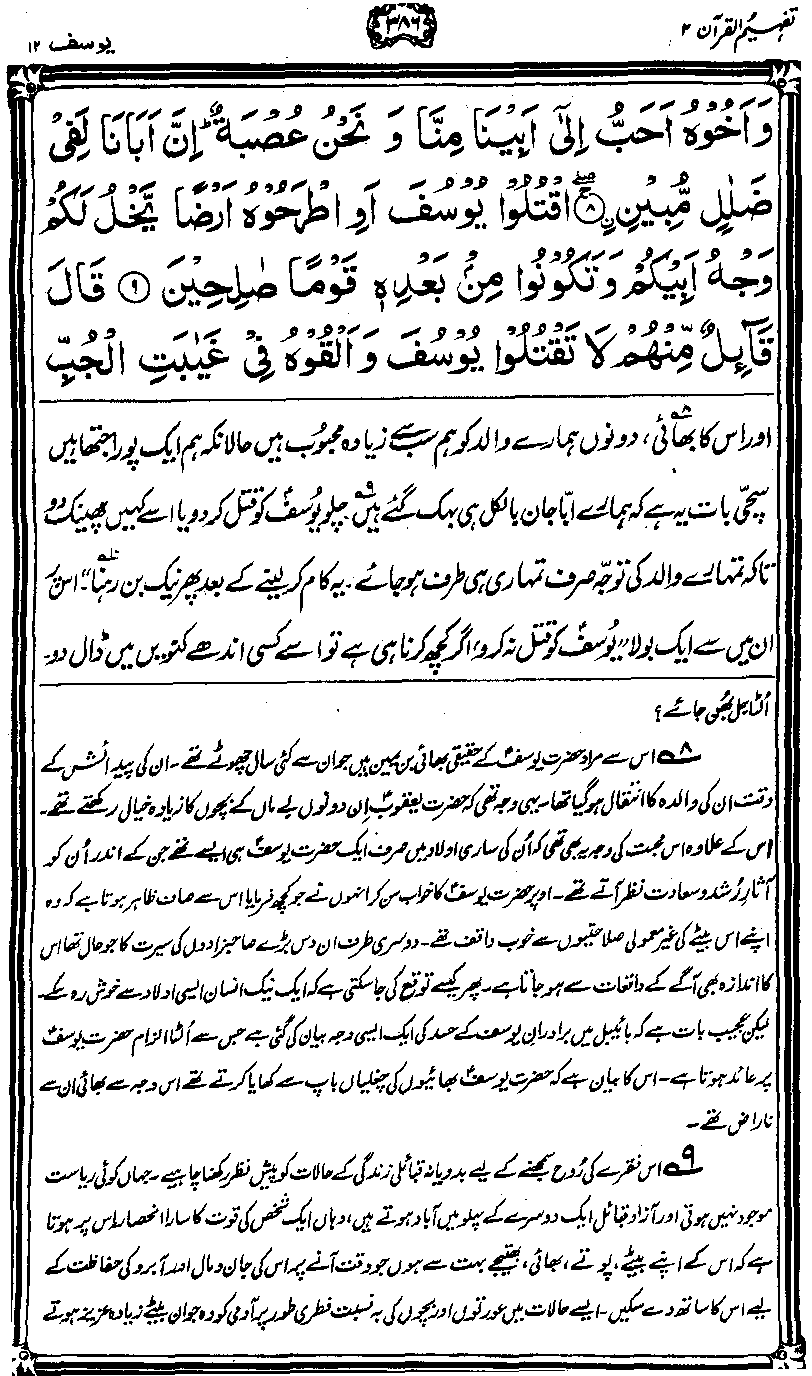 تفہیم القرآن ۲
۳۸۶
یوسف ۱۲
وَاَخُوْهُ اَحَبُّ اِلٰٓى اَبِيْنَا مِنَّا وَ نَحْنُ عُصْبَةٌ ؕ اِنَّ اَبَانَا لَفِىْ
ضَلٰلٍ مُّبِيْنِ ۨ ۚۖ ﴿۸﴾ اقْتُلُوْا يُوْسُفَ اَوِ اطْرَحُوْهُ اَرْضًا يَّخْلُ لَكُمْ
وَجْهُ اَبِيْكُمْ وَتَكُوْنُوْا مِنْۢ بَعْدِهٖ قَوْمًا صٰلِحِيْنَ ﴿۹﴾ قَالَ
قَآئِلٌ مِّنْهُمْ لَا تَقْتُلُوْا يُوْسُفَ وَاَلْقُوْهُ فِىْ غَيٰبَتِ الْجُبِّ
اور اس کا بھائی۸، دونوں ہمارے والد کو ہم سب سے زیادہ محبُوب ہیں حالانکہ ہم ایک پورا جتھا ہیں
سچّی بات یہ ہے کہ ہمارے ابّا جان بالکل ہی بہک گئے ہیں۹۔ چلو یُوسفؑ کو قتل کر دو یا اسے کہیں پھینک دو
تاکہ تمہارے والد کی توجّہ صرف تمہاری ہی طرف ہو جائے۔ یہ کام کر لینے کے بعد پھر نیک بن رہنا۱۰"۔ اس پر
ان میں سے ایک بولا "یُوسفؑ کو قتل نہ کرو، اگر کچھ کرنا ہی ہے تو اسے کسی اندھے کنویں میں ڈال دو۔
اُلٹا جل بُھن جائے؟
۸ اس سے مراد حضرت یوسفؑ کے حقیقی بھائی بن یمین ہیں جو ان سے کئی سال چھوٹے تھے۔ ان کی پیدائش کے
وقت ان کی والدہ کا انتقال ہو گیا تھا۔ یہی وجہ تھی کہ حضرت یعقوبؑ ان دونوں بے ماں کے بچوں کا زیادہ خیال رکھتے تھے۔
اس کے علاوہ اس محبت کی وجہ یہ بھی تھی کہ اُن کی ساری اولاد میں صرف ایک حضرت یوسفؑ ہی ایسے تھے جن کے اندر اُن کو
آثارِ رُشد و سعادت نظر آتے تھے۔ اوپر حضرت یوسفؑ کا خواب سن کر انہوں نے جو کچھ فرمایا اس سے صاف ظاہر ہوتا ہے کہ وہ
اپنے اس بیٹے کی غیر معمولی صلاحیتوں سے خوب واقف تھے۔ دوسری طرف ان دس بڑے صاحبزادوں کی سیرت کا جو حال تھا اس
کا اندازہ بھی آگے کے واقعات سے ہو جاتا ہے۔ پھر کیسے توقع کی جا سکتی ہے کہ ایک نیک انسان ایسی اولاد سے خوش رہ سکے۔
لیکن عجیب بات ہے کہ بائیبل میں برادرانِ یوسف کے حسد کی ایک ایسی وجہ بیان کی گئی ہے جس سے اُلٹا الزام حضرت یوسفؑ
پر عائد ہوتا ہے۔ اس کا بیان ہے کہ حضرت یوسفؑ بھائیوں کی چغلیاں باپ سے کھایا کرتے تھے اس وجہ سے بھائی ان سے
ناراض تھے۔
۹ اس فقرے کی رُوح سمجھنے کے لیے بدویانہ قبائلی زندگی کے حالات کو پیش نظر رکھنا چاہیے۔ جہاں کوئی ریاست
موجود نہیں ہوتی اور آزاد قبائل ایک دوسرے کے پہلو میں آباد ہوتے ہیں، وہاں ایک شخص کی قوت کا سارا انحصار اس پر ہوتا
ہے کہ اس کے اپنے بیٹے، پوتے، بھائی، بھتیجے بہت سے ہوں جو وقت آنے پر اس کی جان و مال اور آبرو کی حفاظت کے
لیے اس کا ساتھ دے سکیں۔ ایسے حالات میں عورتوں اور بچوں کی بہ نسبت فطری طور پر آدمی کو وہ جوان بیٹے زیادہ عزیز ہوتے